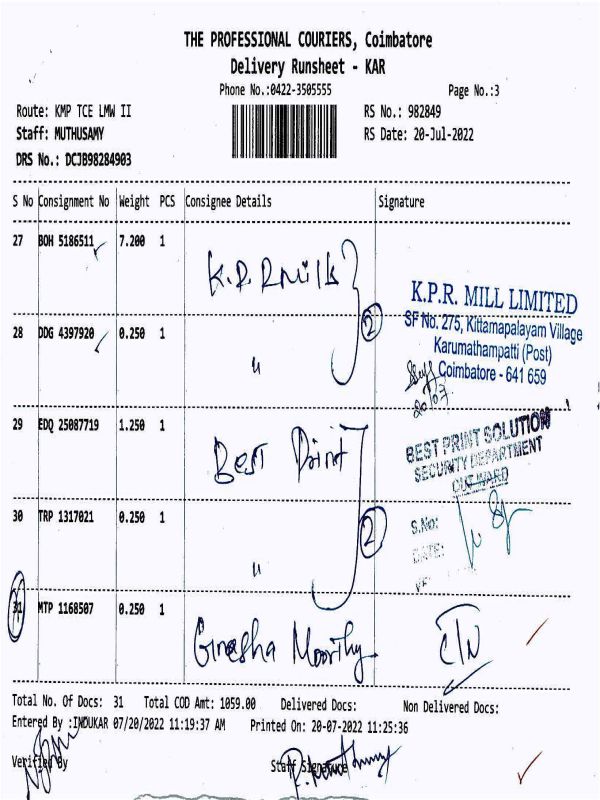 THE PROFESSIONAL COURIERS, Coimbatore
Delivery Runsheet - KAR
Phone No.:0422-3505555 Page No.:3
Route: KMP TCE LMW II RS No.: 982849
Staff: MUTHUSAMY RS Date: 20-Jul-2022
DRS No.: DCJB98284903
S No Consignment No Weight PCS Consignee Details Signature
27 BOH 5186511 7.200 1
K.P.R Mills
K.P.R. MILL LIMITED
SF No. 275, Kittamapalayam Village
28 DDG 4397920 0.250 1 " 2
Karumathampatti (Post)
Coimbatore - 641 659
20/07
29 EDQ 25087719 1.250 1
Best Print
BEST PRINT SOLUTION
SECURITY DEPARTMENT
OUTWARD
30 TRP 1317021 0.250 1 " 2
S.No:
DATE:
31 MTP 1168507 0.250 1
Ganesha Moorthy
Total No. Of Docs: 31 Total COD Amt: 1059.00 Delivered Docs: Non Delivered Docs:
Entered By :INDUKAR 07/20/2022 11:19:37 AM Printed On: 20-07-2022 11:25:36
Verified By Staff Signature